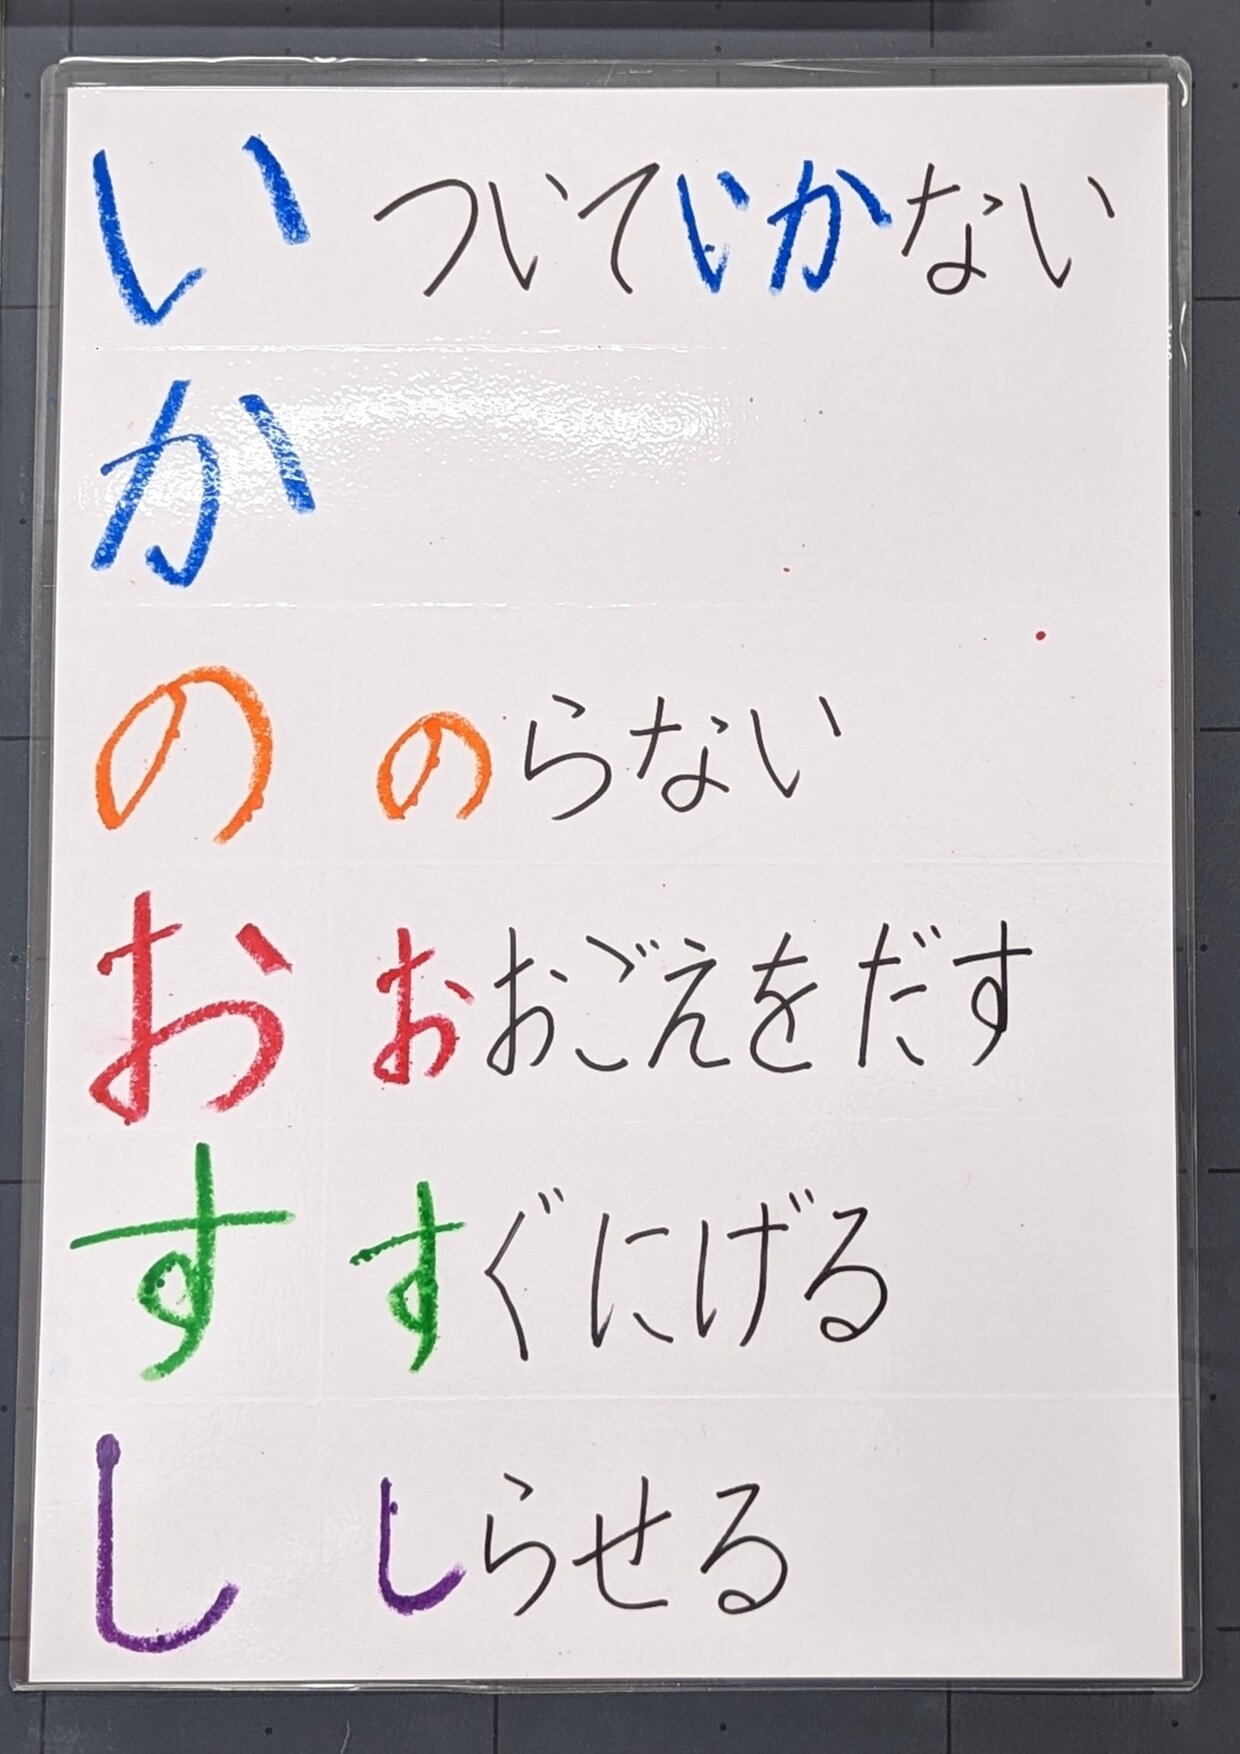 い ついていかない
か
の のらない
お おおごえをだす
す すぐにげる
し しらせる